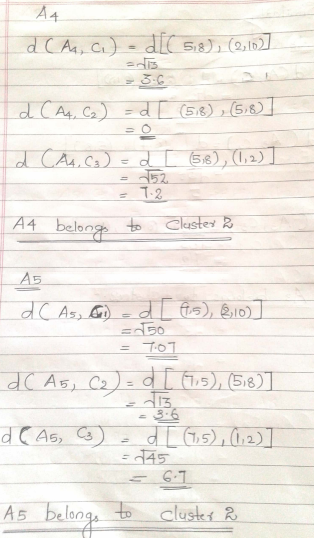 A4
d(A4, C1) = d[(5,8), (2,10)]
= √13
= 3.6
d(A4, C2) = d[(5,8), (5,8)]
= 0
d(A4, C3) = d[(5,8), (1,2)]
= √52
= 7.2
A4 belongs to Cluster 2
A5
d(A5, C1) = d[(7,5), (2,10)]
= √50
= 7.07
d(A5, C2) = d[(7,5), (5,8)]
= √13
= 3.6
d(A5, C3) = d[(7,5), (1,2)]
= √45
= 6.7
A5 belongs to Cluster 2